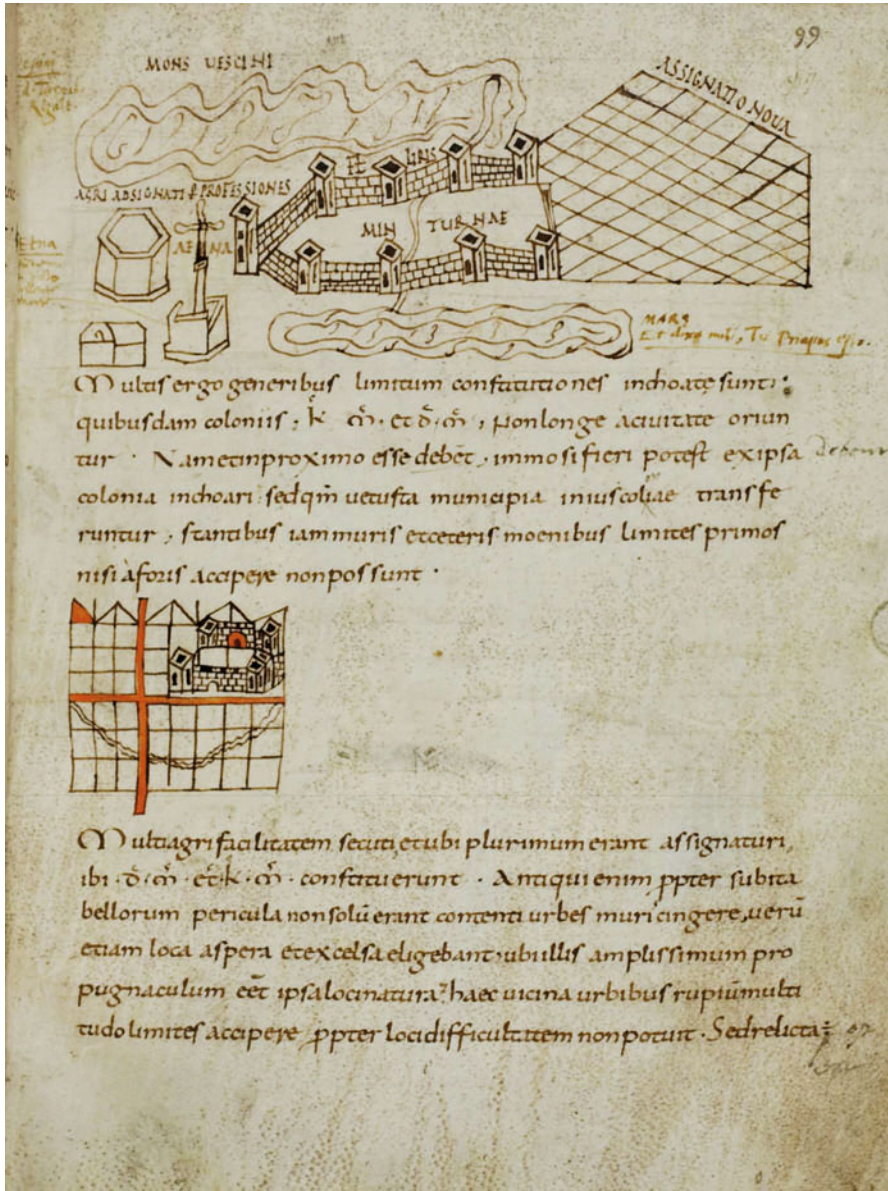 99
MONS VESCINI
ASSIGNATIO NOVA
FL LIRIS
AGRI ADSIGNATI P PROFESSIONES
MIN TURNAE
AE NA
Etna
MARS
Multis ergo generibus limitum constitutiones inchoate sunt;
quibusdam coloniis; k̄ m̄. et d̄. m̄; Non longe aciuitate oriun
tur. Nam et inproximo esse debēt. immo si fieri potest ex ipsa
colonia inchoari sed qm̄ uetusta municipia inius coliae transfe
runtur; stantibus iam muris et ceteris moenibus limites primos
nisi a foris accipere non possunt.
Multi agri facilitatem secuti, et ubi plurimum erant assignaturi,
ibi. d̄. m̄. et. k̄. m̄. constituerunt. Antiqui enim ꝓpter subita
bellorum pericula non solū erant contenti urbes muri cingere, uerū
etiam loca aspera et excelsa eligebant. ubi illis amplissimum pro
pugnaculum eēt ipsa loci natura. haec uicina urbibus rupiū multi
tudo limites accipere ꝓpter loci difficultatem non potuit. Sed relicta